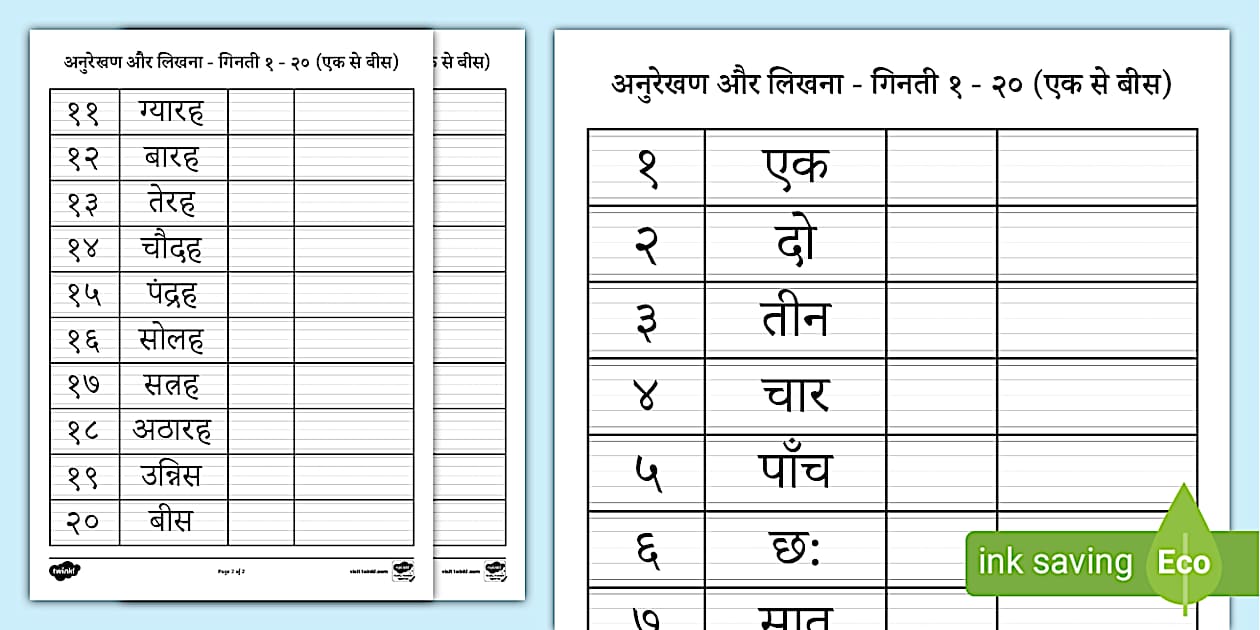 अनुरेखण और लिखना - गिनती १ - २० (एक से बीस)
११ ग्यारह
१२ बारह
१३ तेरह
१४ चौदह
१५ पंद्रह
१६ सोलह
१७ सत्रह
१८ अठारह
१९ उन्निस
२० बीस
twinkl Page 2 of 2 visit twinkl.com
से बीस)
visit twinkl.com
अनुरेखण और लिखना - गिनती १ - २० (एक से बीस)
१ एक
२ दो
३ तीन
४ चार
५ पाँच
६ छः
७ सात
ink saving Eco